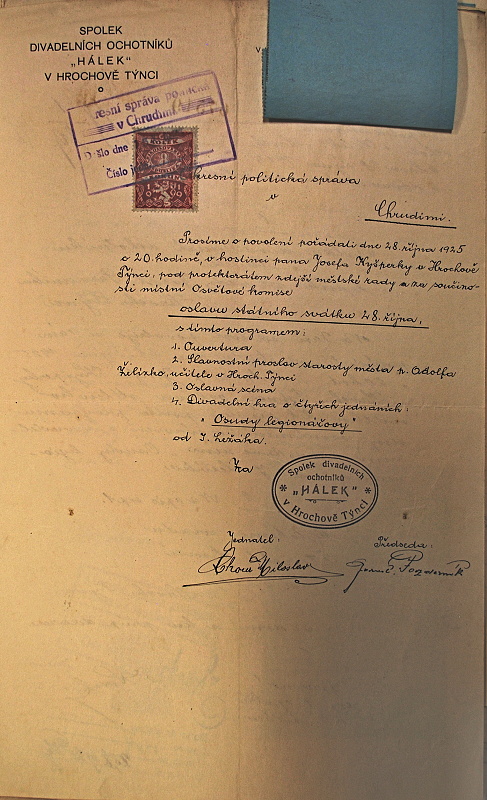 SPOLEK
DIVADELNÍCH OCHOTNÍKŮ
„HÁLEK“
V HROCHOVĚ TÝNCI
esní správa politická
v Chrudimi
Došlo dne
Číslo
kresní politická správa
v
Chrudimi.
Prosíme o povolení pořádati dne 28. října 1925
o 20. hodině, v hostinci pana Josefa Kyšperky v Hrochově
Týnci, pod protektorátem zdejší městské rady a za součino-
sti místní Osvětové komise
oslavu státního svátku 28. října,
s tímto programem:
1. Ouvertura
2. Slavnostní proslov starosty města p. Adolfa
Žilinko, učitele v Hroch. Týnci
3. Oslavná scéna
4. Divadelní hra o čtyřech jednáních:
"Osudy legionářovy"
od I. Ležáka.
Za
Spolek divadelních
ochotníků
* „HÁLEK“ *
v Hrochově Týnci
Jednatel: Předseda:
Miloslav